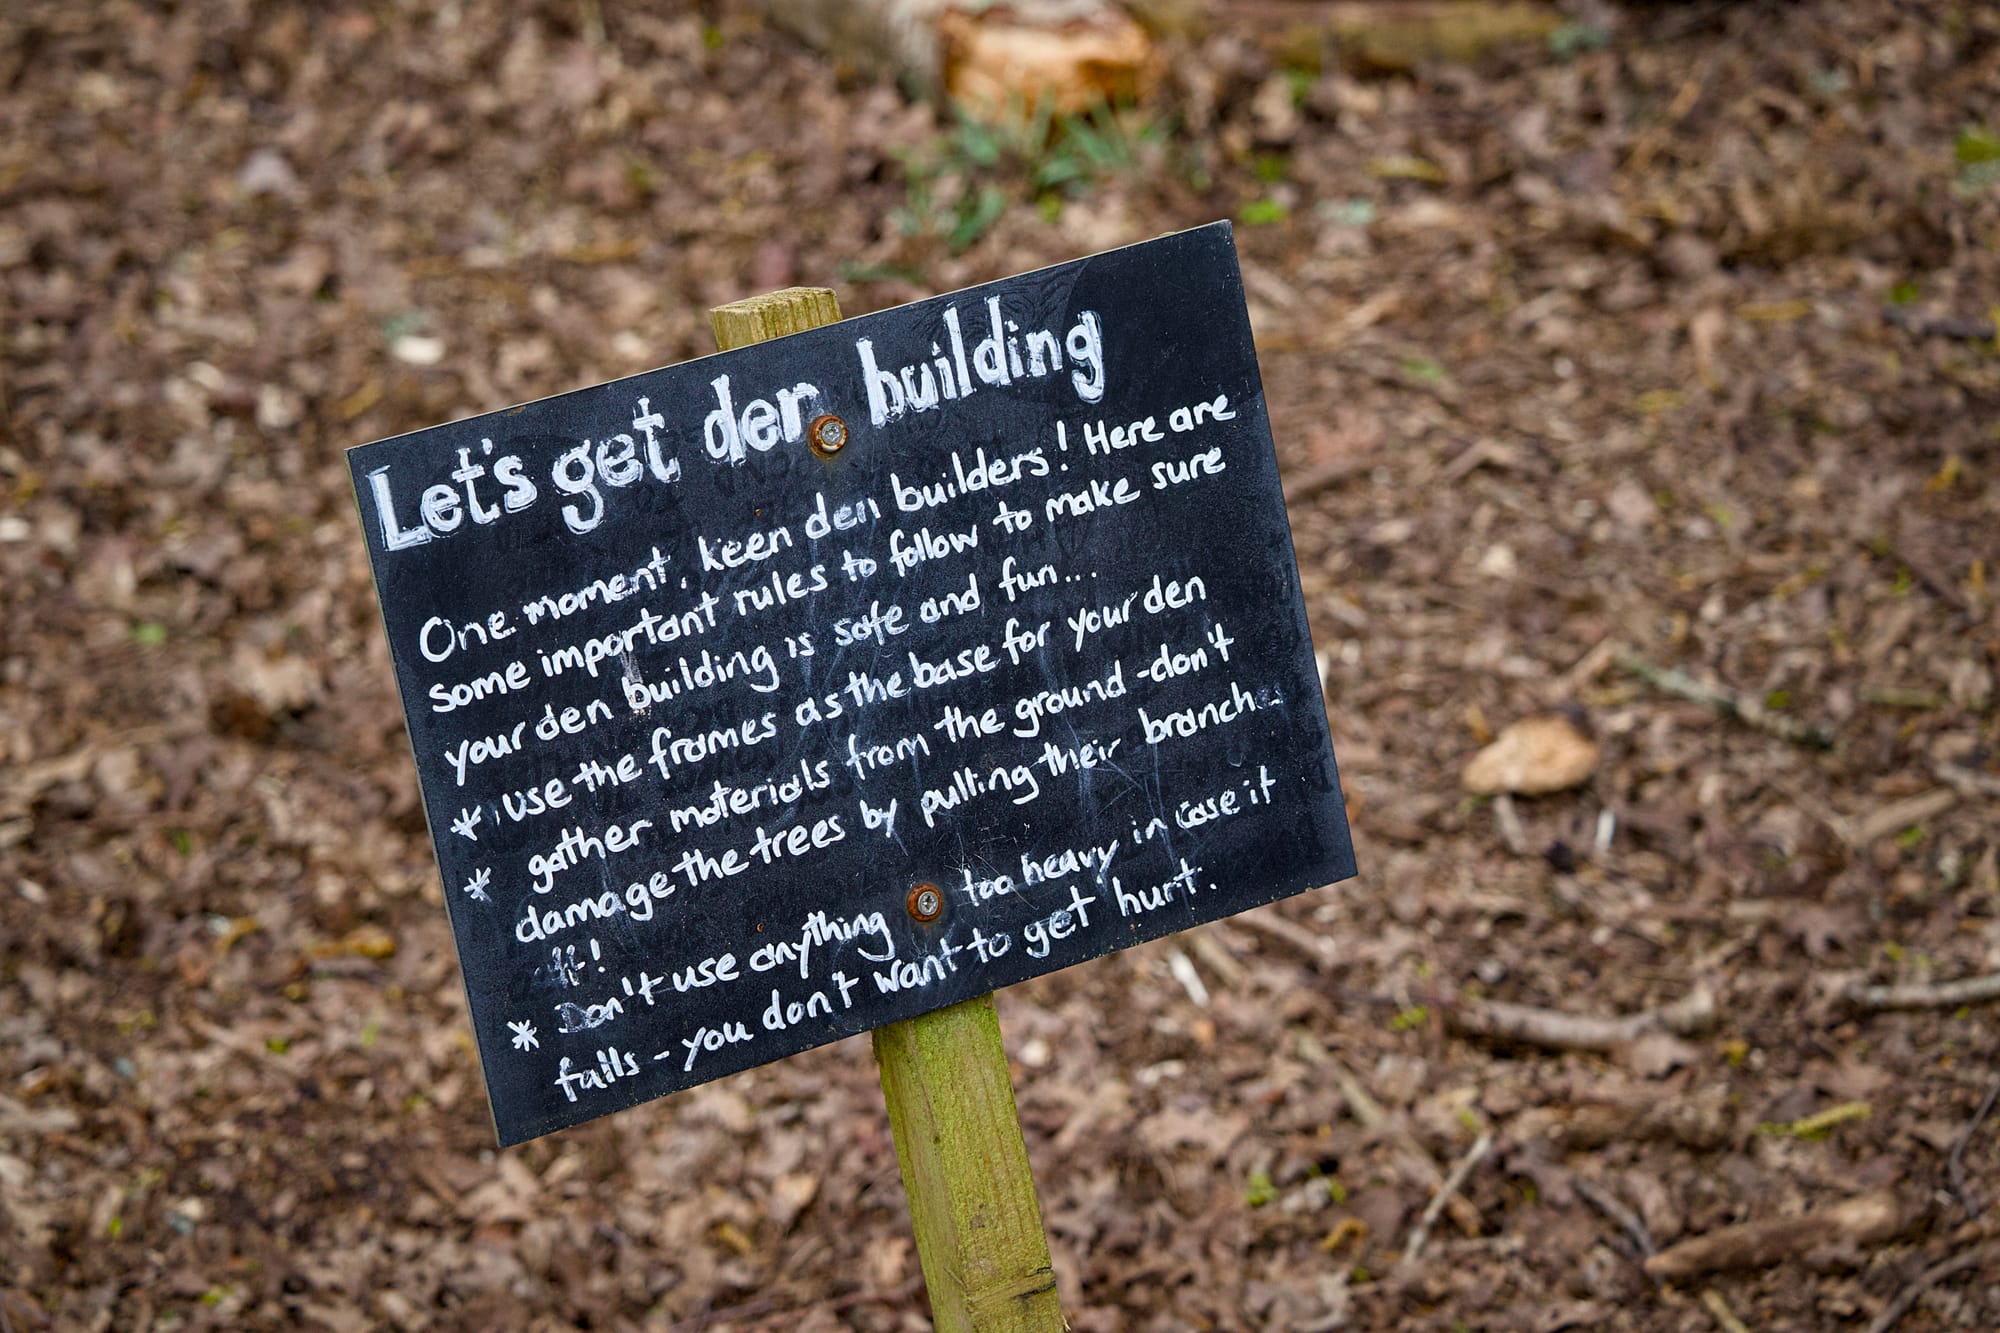 Let's get den building
One moment, keen den builders! Here are
some important rules to follow to make sure
your den building is safe and fun...
* use the frames as the base for your den
* gather materials from the ground - don't
damage the trees by pulling their branches
off!
* Don't use anything too heavy in case it
falls - you don't want to get hurt.